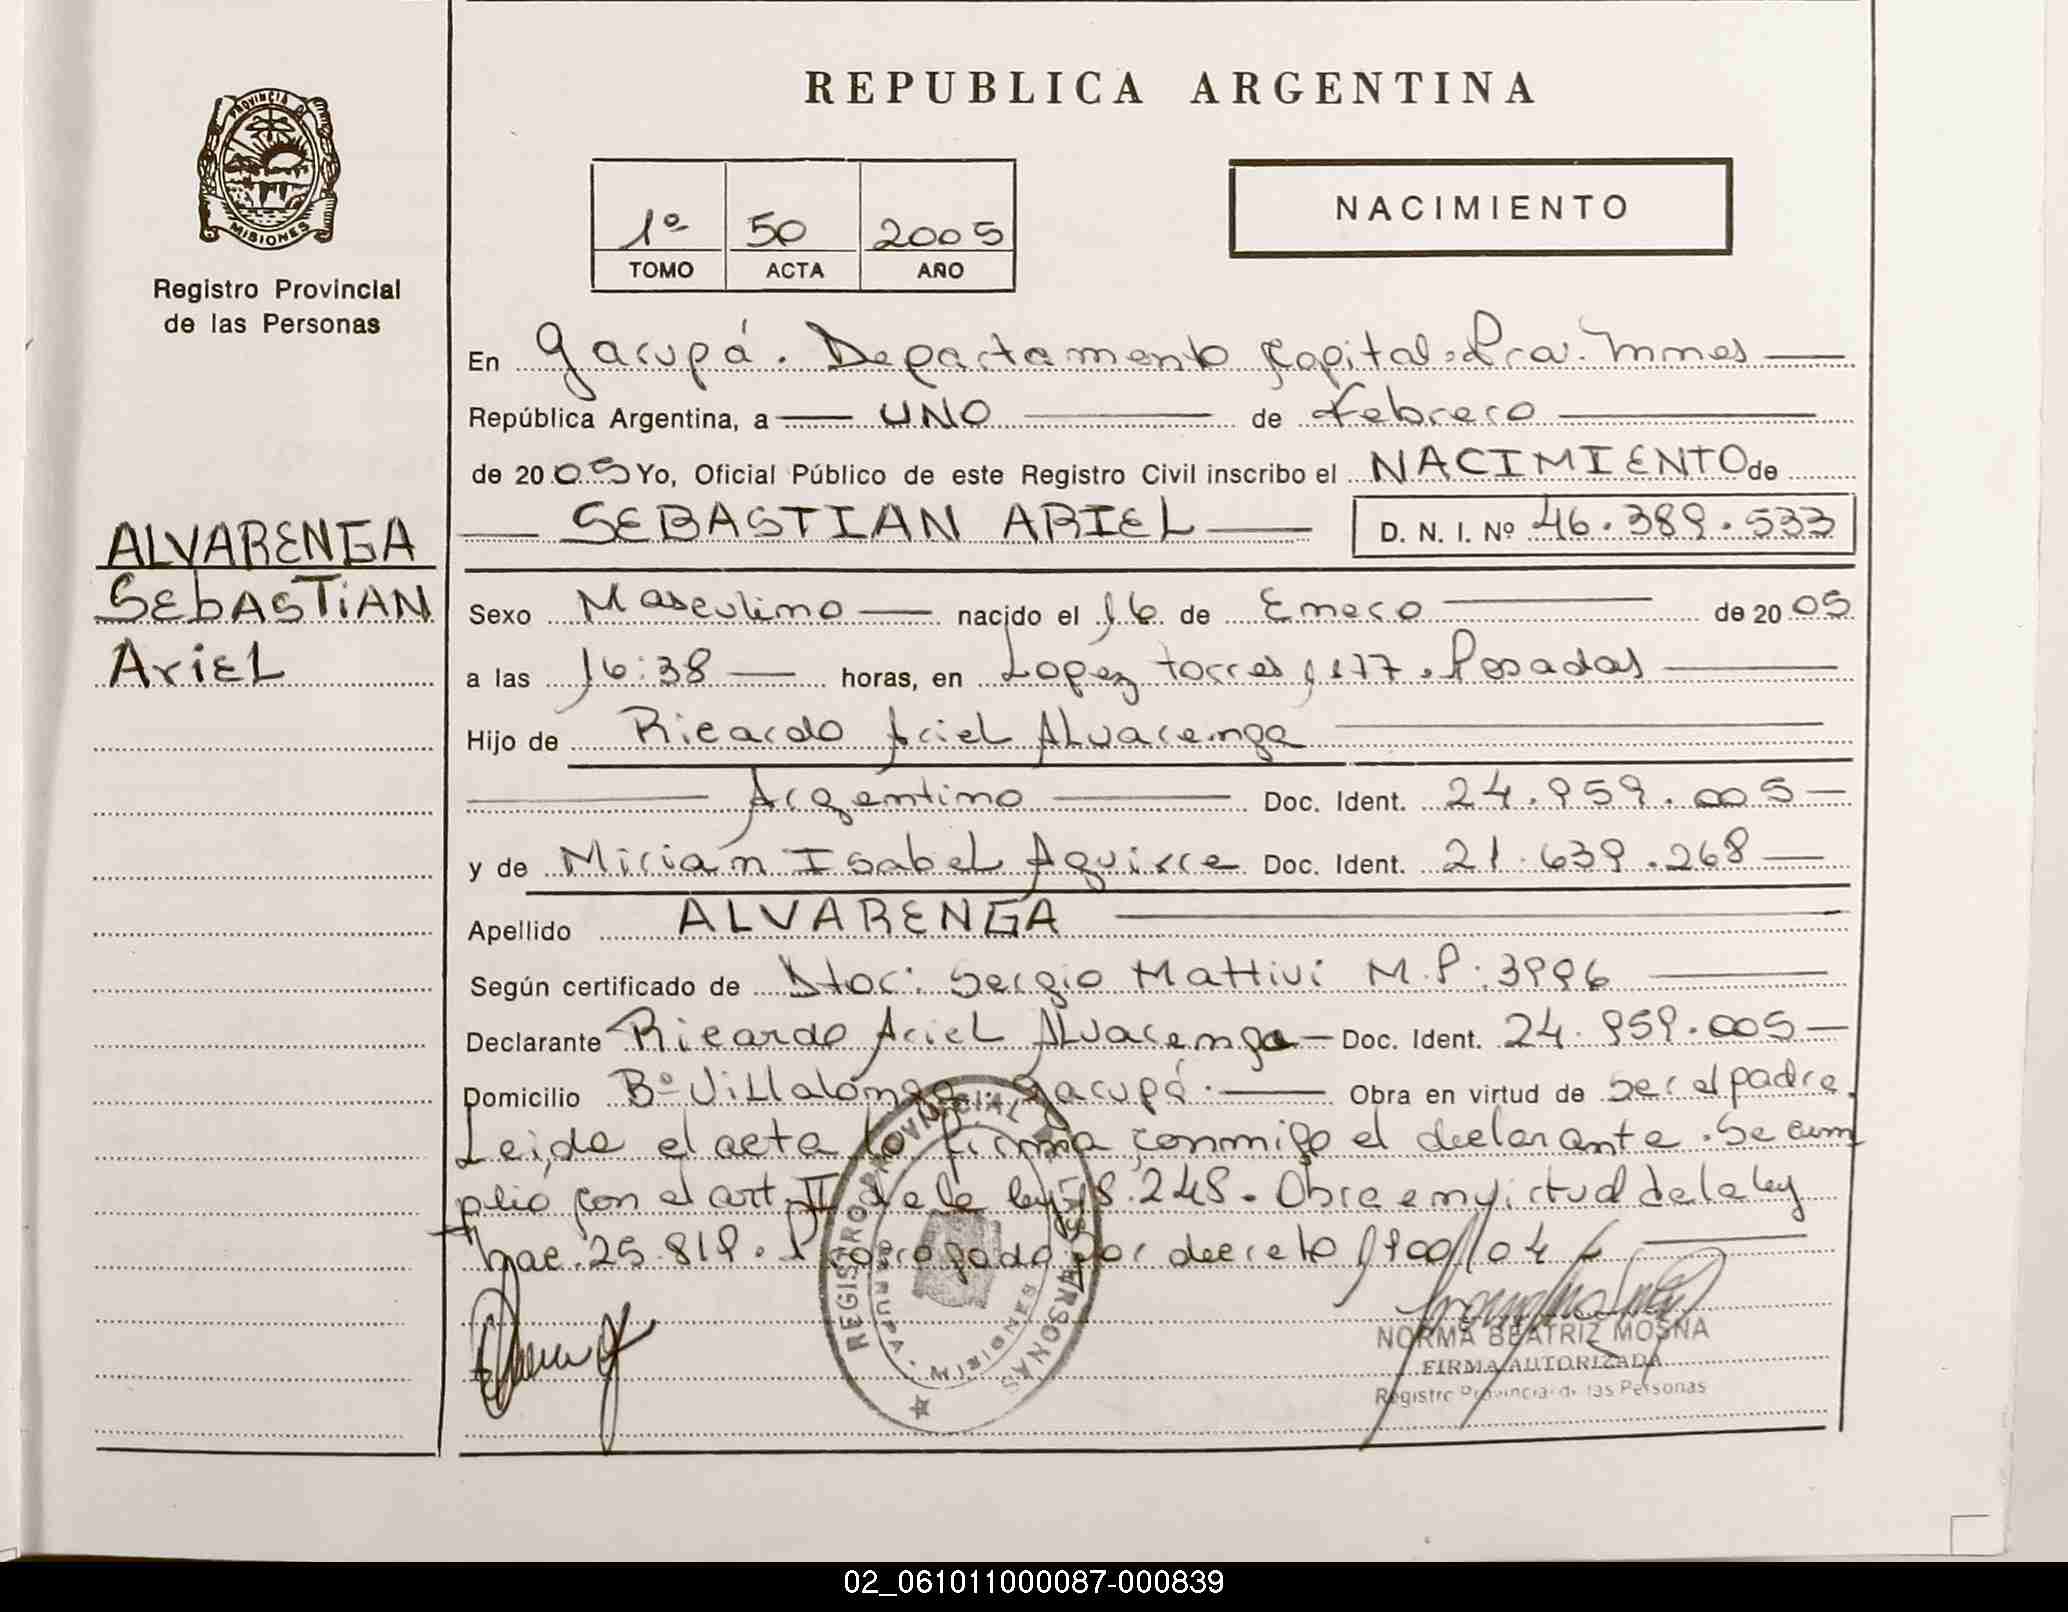 REPUBLICA ARGENTINA
PROVINCIA DE
MISIONES
Registro Provincial
de las Personas
1º 50 2005
TOMO ACTA AÑO
NACIMIENTO
En Garupá. Departamento Capital. Pcia. Mnes
República Argentina, a UNO de Febrero
de 2005 Yo, Oficial Público de este Registro Civil inscribo el NACIMIENTO de
SEBASTIAN ARIEL D. N. I. Nº 46.389.533
ALVARENGA
SEbASTiAN
AriEL
Sexo Masculino nacido el 16 de Enero de 2005
a las 16:38 horas, en Lopez Torres 1177. Posadas
Hijo de Ricardo Ariel Alvarenga
Argentino Doc. Ident. 24.959.005
y de Mirian Isabel Aguirre Doc. Ident. 21.639.268
Apellido ALVARENGA
Según certificado de Dtor: Sergio Mattivi M.P.:3996
Declarante Ricardo Ariel Alvarenga Doc. Ident. 24.959.005
Domicilio Bº Villalonga. Garupá. Obra en virtud de ser el padre.
Leida el acta lo firma conmigo el declarante. Se cum
plió con el art. II de la ley 18.248. Obra en virtud de la ley
nac. 25.819. Prorogado por decreto 1900/04
REGISTRO PROVINCIAL DE LAS PERSONAS
GARUPA - MISIONES
NORMA BEATRIZ MOSNA
FIRMA AUTORIZADA
Registro Provincial de las Personas
02_061011000087-000839